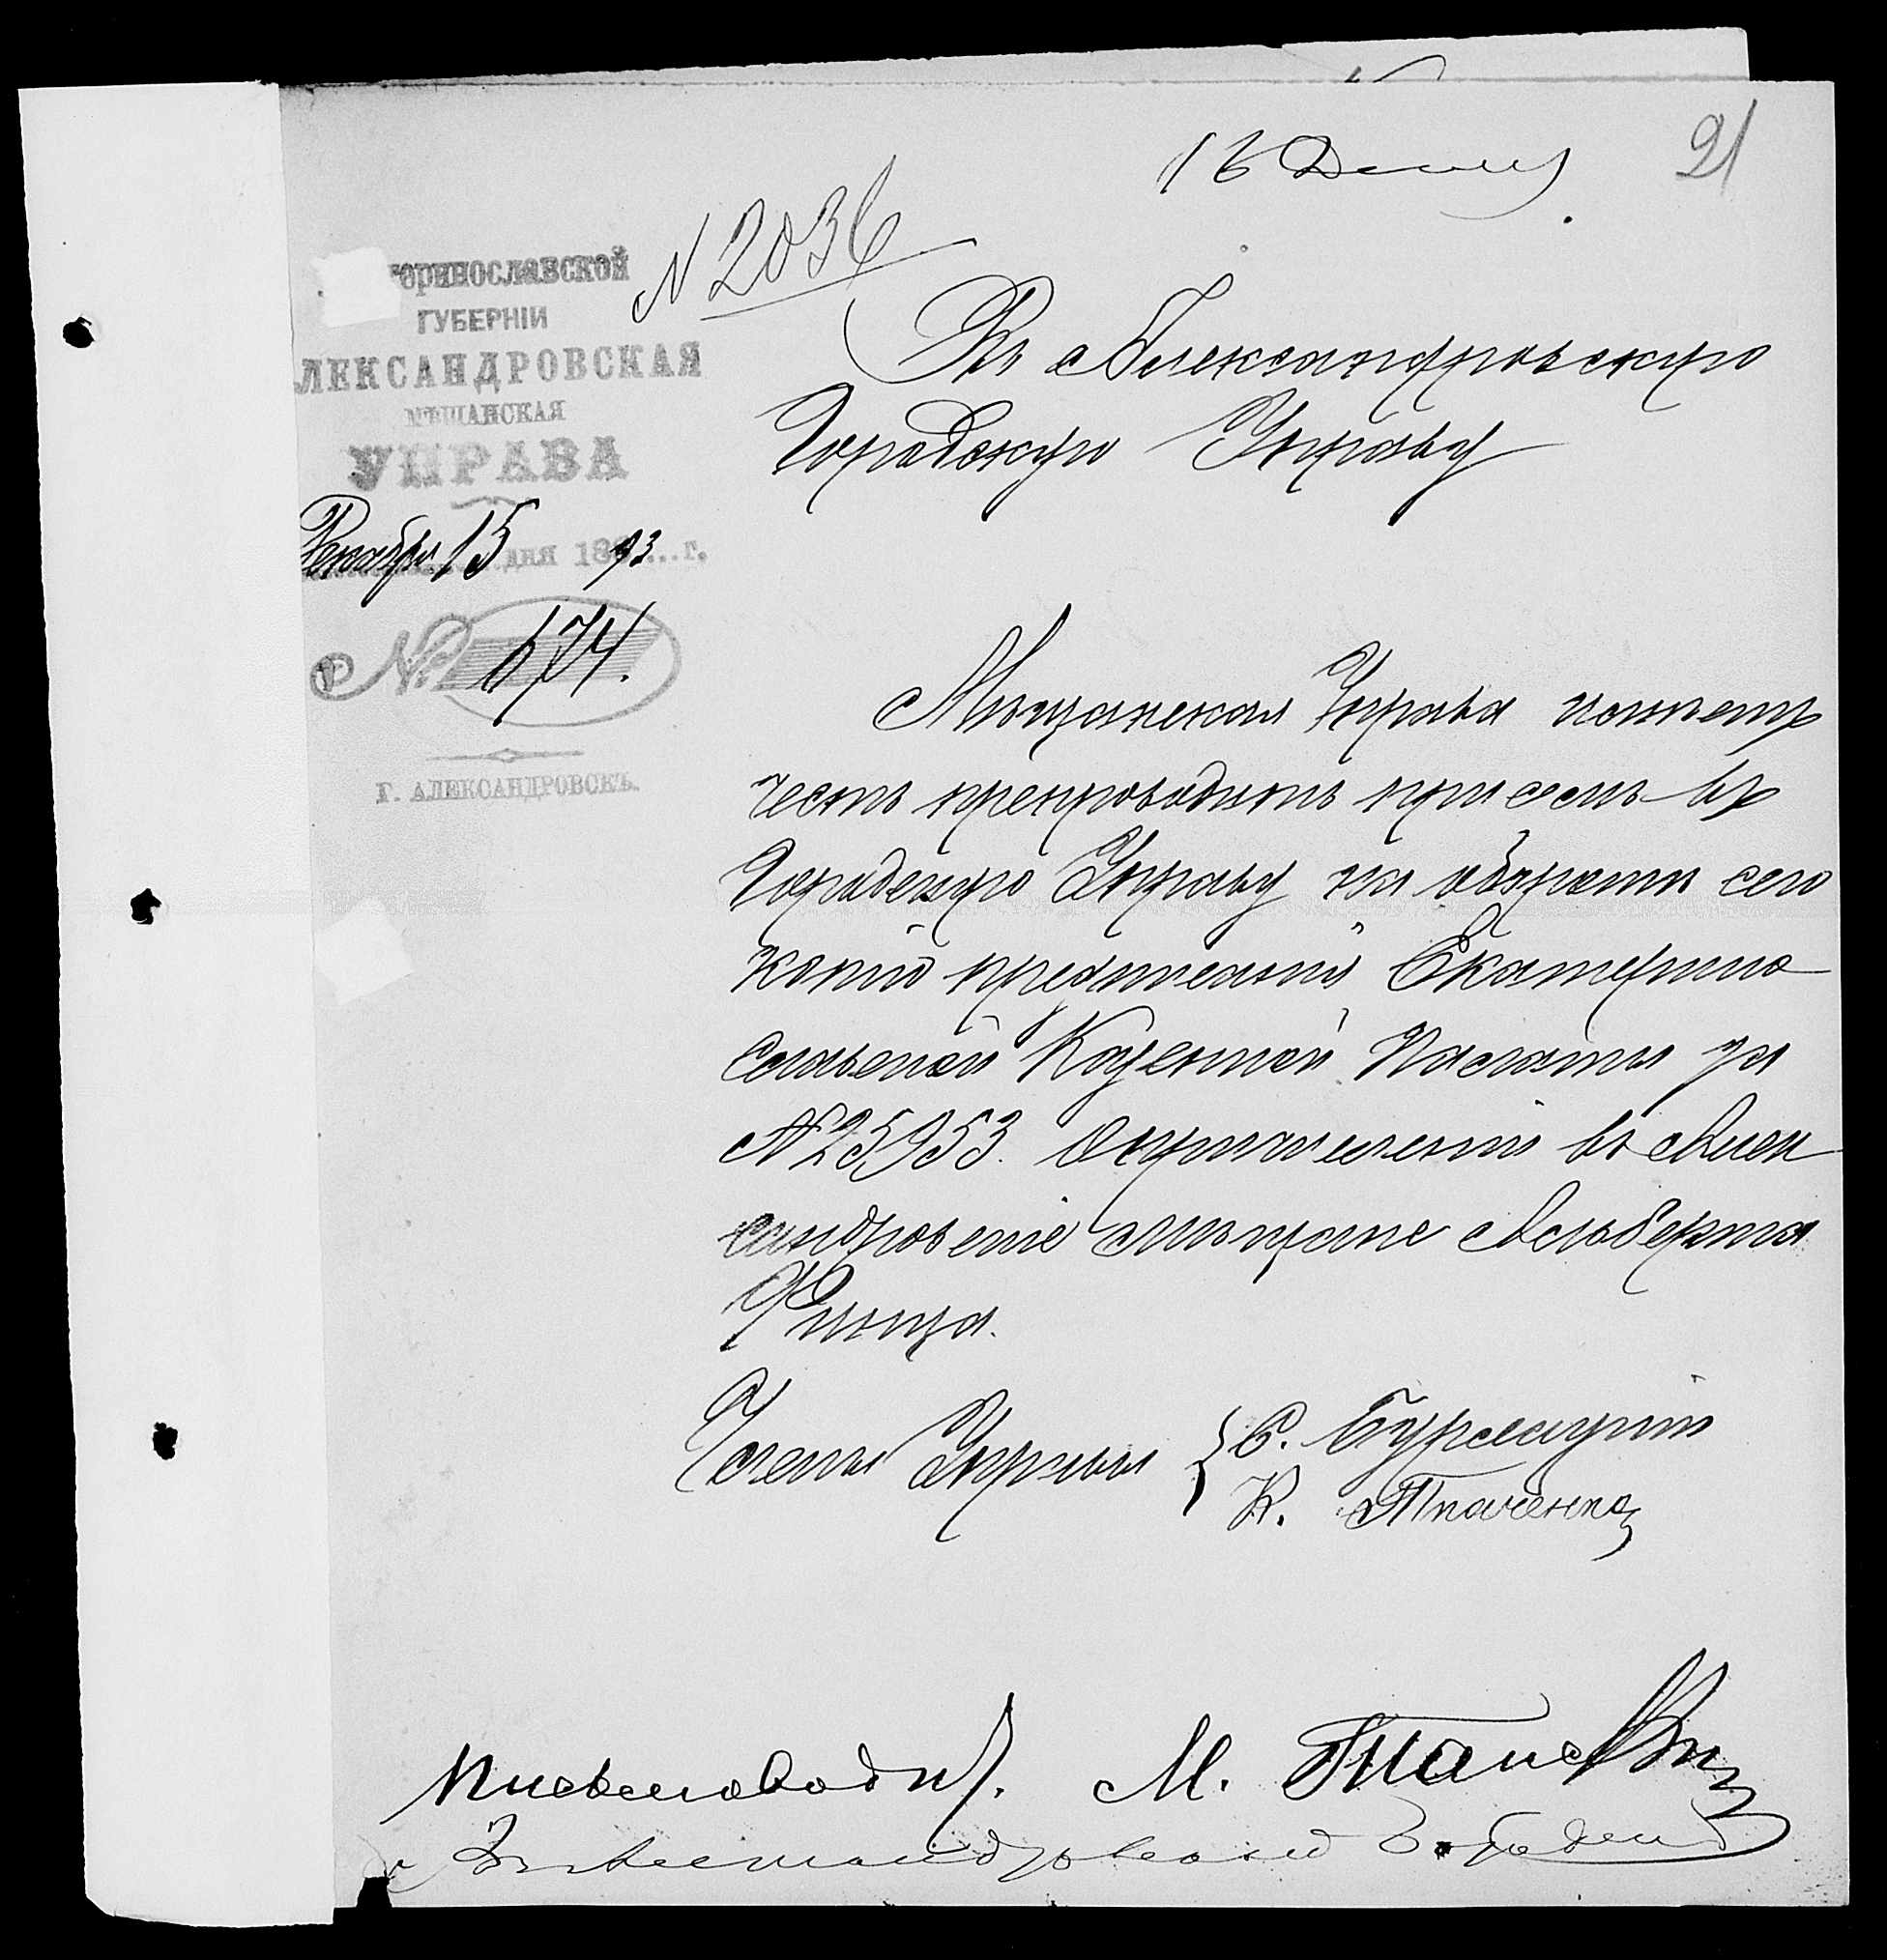 16 Дек
21
N 2036
теринославской
ГУБЕРНІИ
ЛЕКСАНДРОВСКАЯ
МѢЩАНСКАЯ
УПРАВА
Декабря 15 дня 1893 г.
№ 674.
Г. АЛЕКСАНДРОВСКЪ.
Въ Александровскую
Городскую Управу
Мѣщанская Управа имѣетъ
честь препроводить при семъ въ
Городскую Управу на обороте сего
копію предписанія Екатерино
славской Казенной Палаты за
№ 25953. о въ Алек
сандровскіе мѣщане Альберта
Члены Управы { С.
К. Ткаченко
Письмоводит. М.